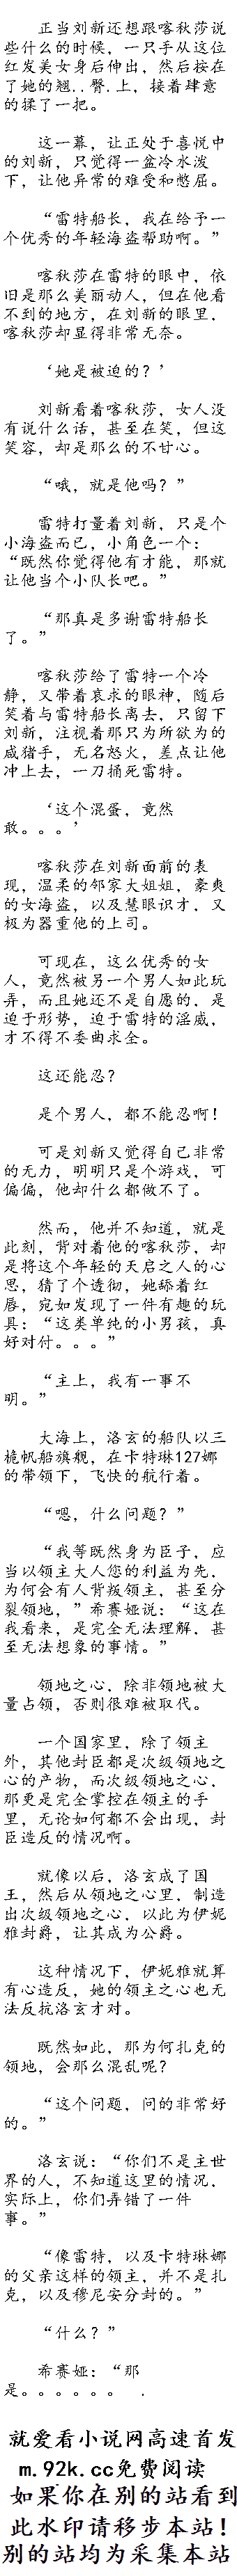 正当刘新还想跟喀秋莎说
些什么的时候，一只手从这位
红发美女身后伸出，然后按在
了她的翘..臀.上，接着肆意
的揉了一把。
这一幕，让正处于喜悦中
的刘新，只觉得一盆冷水泼
下，让他异常的难受和憋屈。
“雷特船长，我在给予一
个优秀的年轻海盗帮助啊。”
喀秋莎在雷特的眼中，依
旧是那么美丽动人，但在他看
不到的地方，在刘新的眼里，
喀秋莎却显得非常无奈。
‘她是被迫的？’
刘新看着喀秋莎，女人没
有说什么话，甚至在笑，但这
笑容，却是那么的不甘心。
“哦，就是他吗？”
雷特打量着刘新，只是个
小海盗而已，小角色一个：
“既然你觉得他有才能，那就
让他当个小队长吧。”
“那真是多谢雷特船长
了。”
喀秋莎给了雷特一个冷
静，又带着哀求的眼神，随后
笑着与雷特船长离去，只留下
刘新，注视着那只为所欲为的
咸猪手，无名怒火，差点让他
冲上去，一刀捅死雷特。
‘这个混蛋，竟然
敢。。。’
喀秋莎在刘新面前的表
现，温柔的邻家大姐姐，豪爽
的女海盗，以及慧眼识才，又
极为器重他的上司。
可现在，这么优秀的女
人，竟然被另一个男人如此玩
弄，而且她还不是自愿的，是
迫于形势，迫于雷特的淫威，
才不得不委曲求全。
这还能忍？
是个男人，都不能忍啊！
可是刘新又觉得自己非常
的无力，明明只是个游戏，可
偏偏，他却什么都做不了。
然而，他并不知道，就是
此刻，背对着他的喀秋莎，却
是将这个年轻的天启之人的心
思，猜了个透彻，她舔着红
唇，宛如发现了一件有趣的玩
具：“这类单纯的小男孩，真
好对付。。。”
“主上，我有一事不
明。”
大海上，洛玄的船队以三
桅帆船旗舰，在卡特琳127娜
的带领下，飞快的航行着。
“嗯，什么问题？”
“我等既然身为臣子，应
当以领主大人您的利益为先，
为何会有人背叛领主，甚至分
裂领地，”希赛娅说：“这在
我看来，是完全无法理解，甚
至无法想象的事情。”
领地之心，除非领地被大
量占领，否则很难被取代。
一个国家里，除了领主
外，其他封臣都是次级领地之
心的产物，而次级领地之心，
那更是完全掌控在领主的手
里，无论如何都不会出现，封
臣造反的情况啊。
就像以后，洛玄成了国
王，然后从领地之心里，制造
出次级领地之心，以此为伊妮
雅封爵，让其成为公爵。
这种情况下，伊妮雅就算
有心造反，她的领主之心也无
法反抗洛玄才对。
既然如此，那为何扎克的
领地，会那么混乱呢？
“这个问题，问的非常好
的。”
洛玄说：“你们不是主世
界的人，不知道这里的情况，
实际上，你们弄错了一件
事。”
“像雷特，以及卡特琳娜
的父亲这样的领主，并不是扎
克，以及穆尼安分封的。”
“什么？”
希赛娅：“那
是。。。。。。 .
就爱看小说网高速首发
m.92k.cc免费阅读
如果你在别的站看到
此水印请移步本站！
别的站均为采集本站